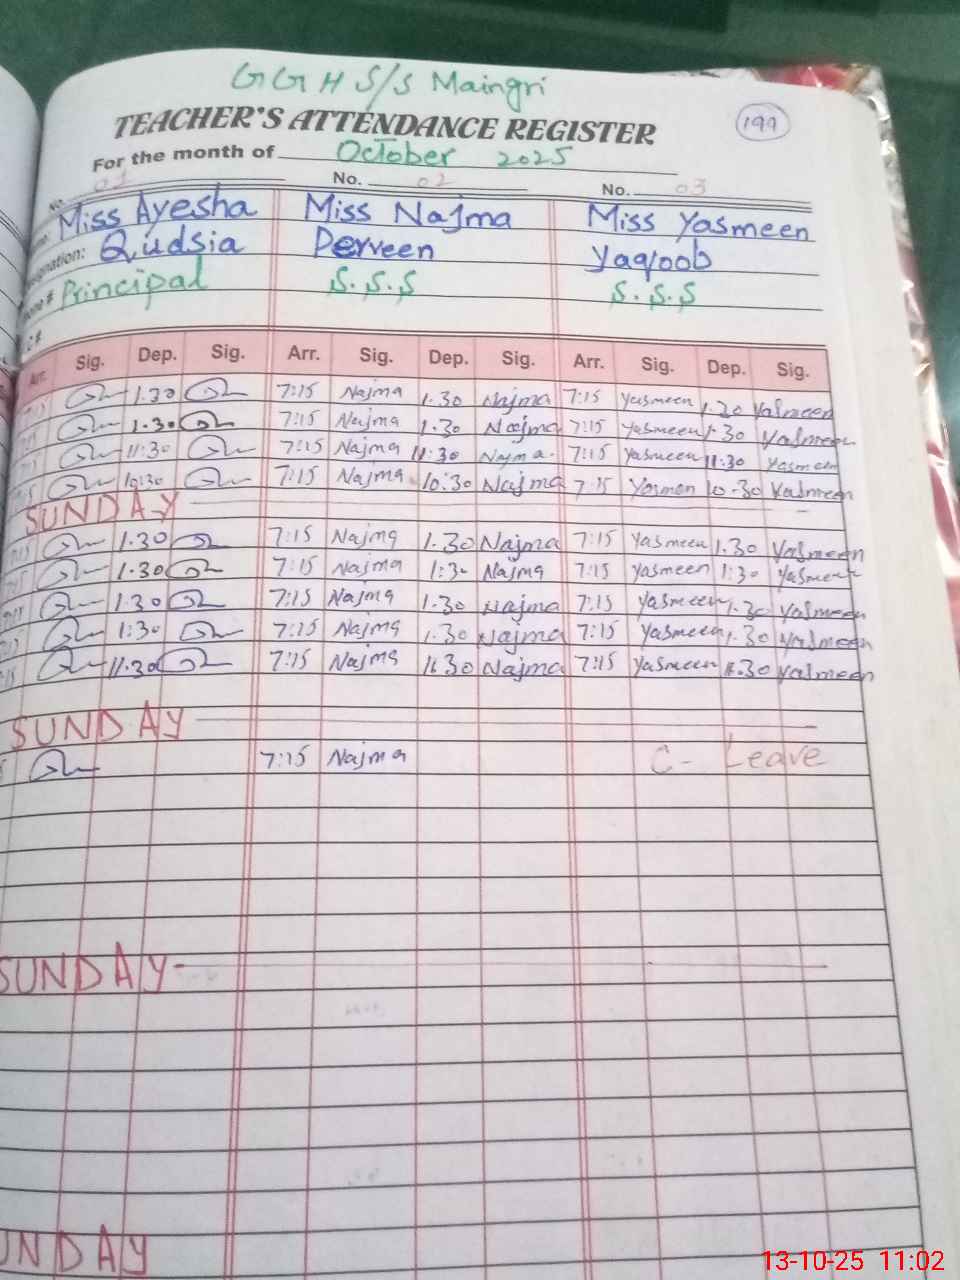 GGHS/S Maingri
TEACHER'S ATTENDANCE REGISTER
199
For the month of October 2025
No. 01 No. 02 No. 03
Miss Ayesha Miss Najma Miss Yasmeen
Qudsia Perveen Yaqoob
Principal S.S.S S.S.S
Arr. Sig. Dep. Sig. Arr. Sig. Dep. Sig. Arr. Sig. Dep. Sig.
1.30 7:15 Najma 1.30 Najma 7:15 Yasmeen 1.30 Yasmeen
1.30 7:15 Najma 1.30 Najma 7:15 Yasmeen 1.30 Yasmeen
11:30 7:15 Najma 11:30 Najma 7:15 Yasmeen 11:30 Yasmeen
10:30 7:15 Najma 10:30 Najma 7:15 Yasmeen 10-30 Yasmeen
SUNDAY
1.30 7:15 Najma 1.30 Najma 7:15 Yasmeen 1.30 Yasmeen
1.30 7:15 Najma 1:30 Najma 7:15 Yasmeen 1:30 Yasmeen
1.30 7:15 Najma 1.30 Najma 7:15 Yasmeen 1.30 Yasmeen
1:30 7:15 Najma 1.30 Najma 7:15 Yasmeen 1.30 Yasmeen
11.30 7:15 Najma 11.30 Najma 7:15 Yasmeen 11.30 Yasmeen
SUNDAY
7:15 Najma C- Leave
SUNDAY
SUNDAY
13-10-25 11:02